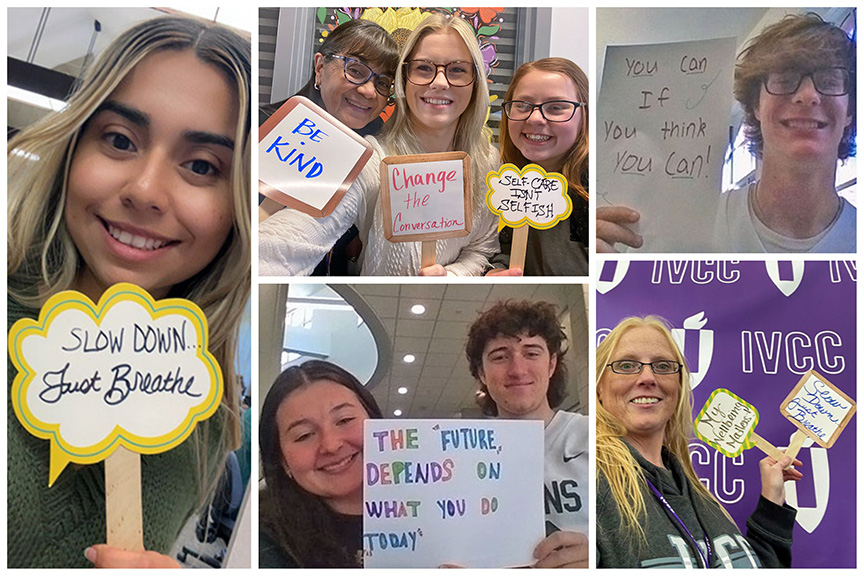 SLOW DOWN...
Just Breathe
BE
KIND
Change
the
Conversation
SELF-CARE
ISN'T
SELFISH
You Can
If
You think
You Can!
THE "FUTURE
DEPENDS ON
WHAT YOU DO
TODAY"
NS
IVCC
IVCC
IVCC
My
Wellbeing
Matters
Slow
Down
Just
Breathe